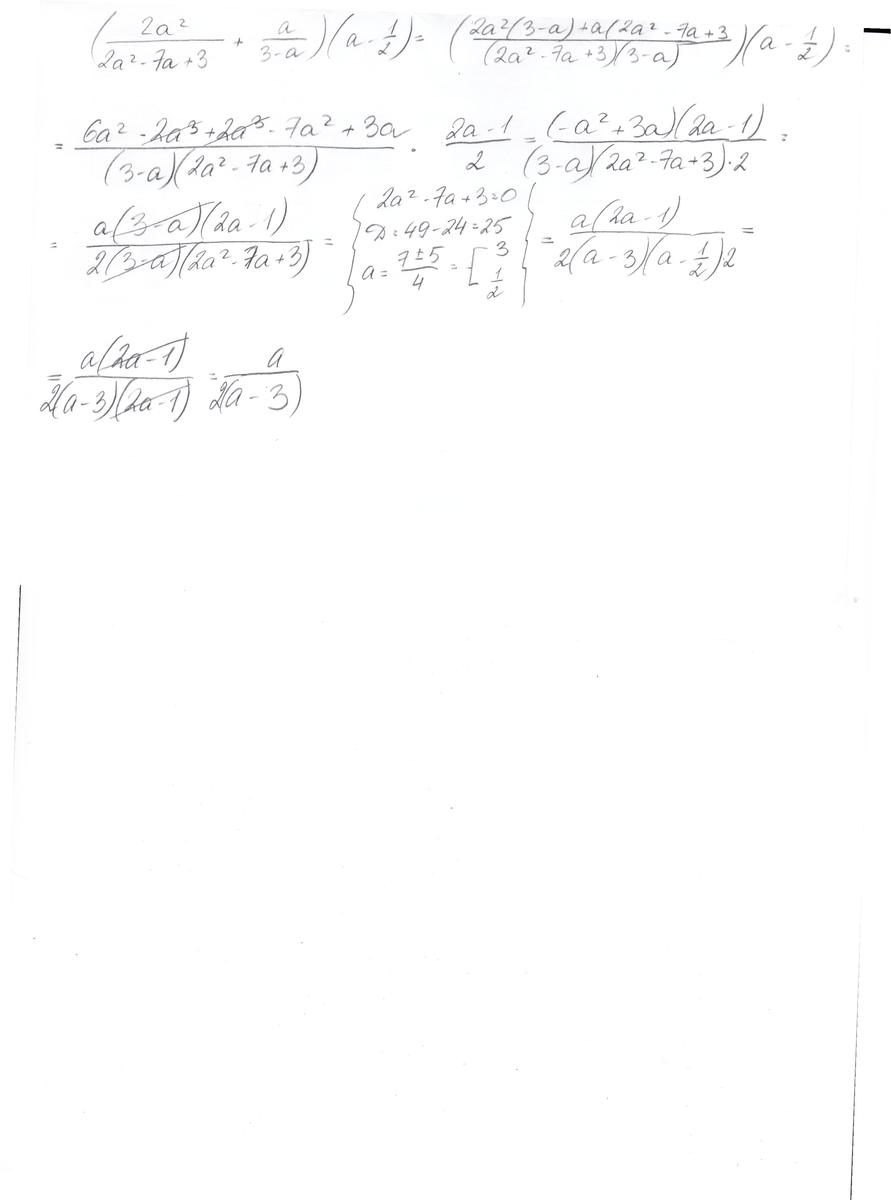 (2a²/(2a²-7a+3) + a/(3-a))(a - 1/2) = ((2a²(3-a)+a(2a²-7a+3)/((2a²-7a+3)(3-a)))(a - 1/2) =
= (6a² - 2a³ + 2a³ - 7a² + 3a)/((3-a)(2a²-7a+3)) · (2a-1)/2 = ((-a²+3a)(2a-1))/((3-a)(2a²-7a+3)·2) =
= (a(3-a)(2a-1))/(2(3-a)(2a²-7a+3)) = { 2a²-7a+3=0
D=49-24=25
a = (7±5)/4 = [ 3
1/2 } = (a(2a-1))/(2(a-3)(a-1/2)·2) =
= (a(2a-1))/(2(a-3)(2a-1)) = a/(2(a-3))